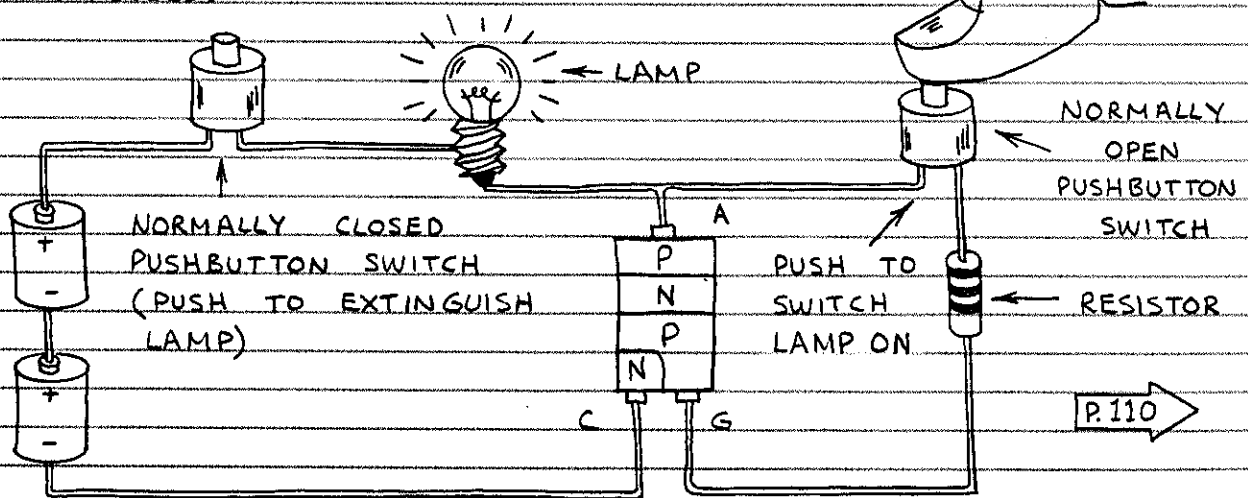 LAMP
NORMALLY
OPEN
PUSHBUTTON
SWITCH
NORMALLY CLOSED
PUSHBUTTON SWITCH
(PUSH TO EXTINGUISH
LAMP)
+
-
+
-
A
P
N
P
N
C
G
PUSH TO
SWITCH
LAMP ON
RESISTOR
P. 110